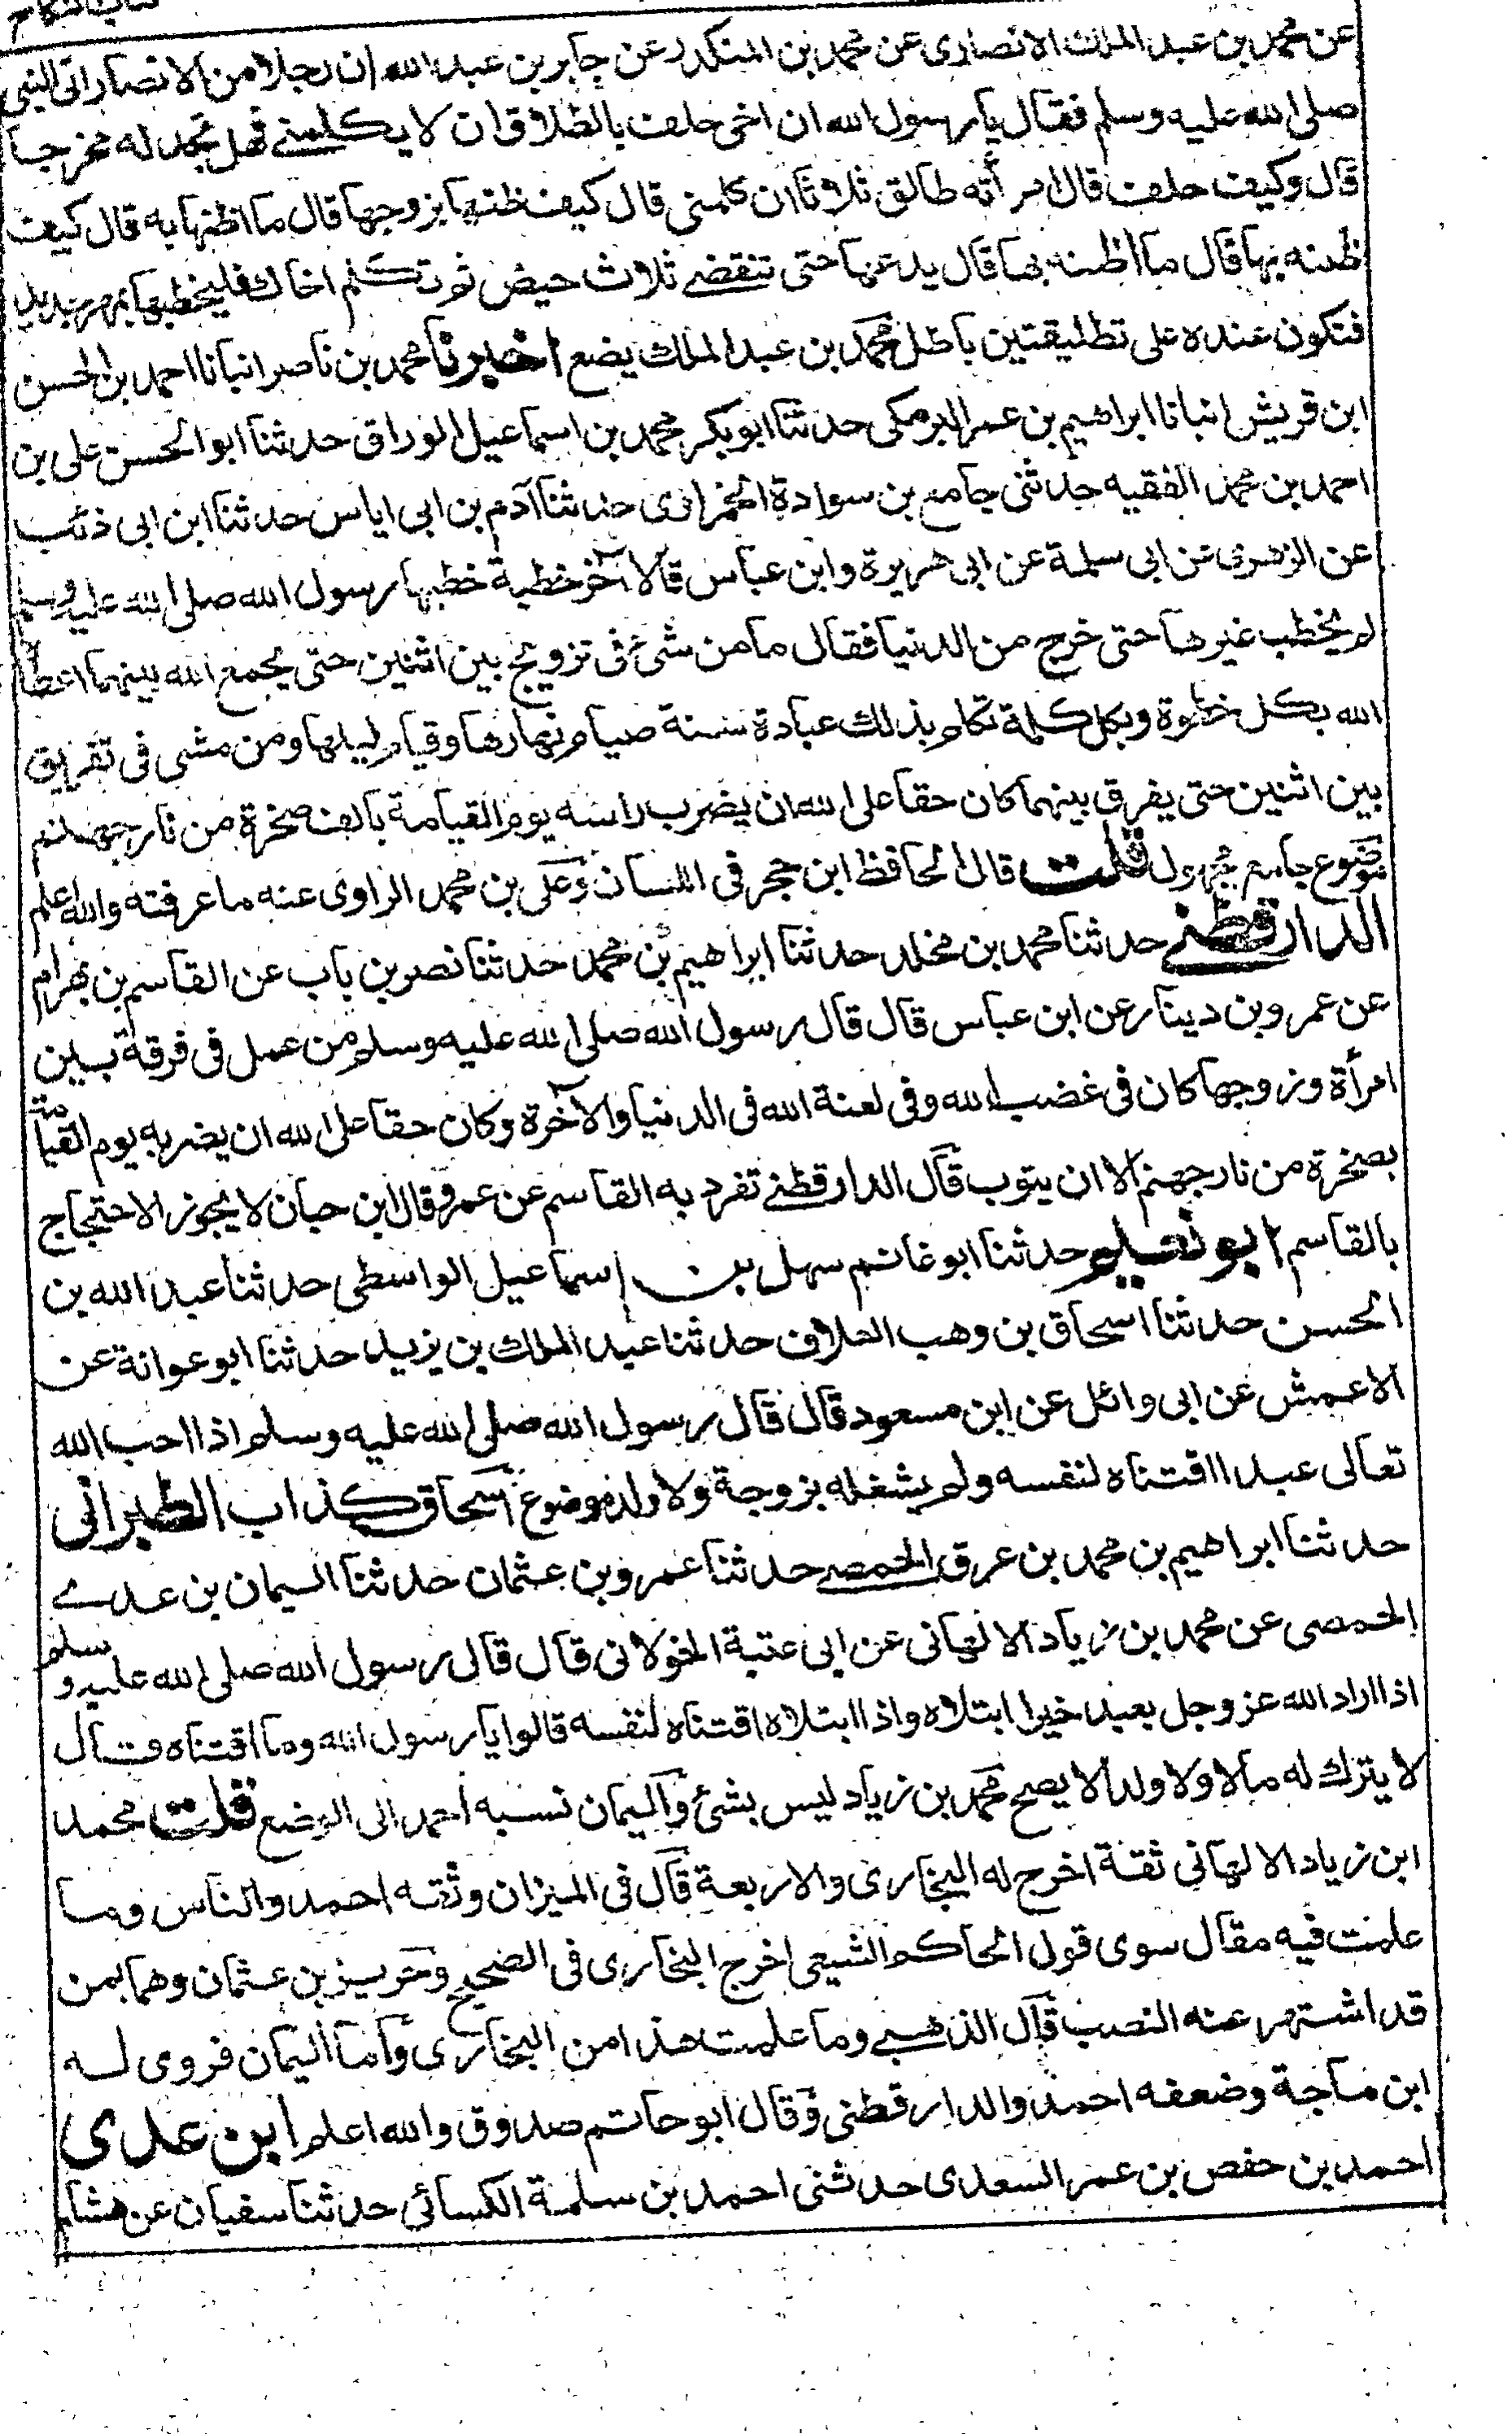 عن محمد بن عبد الملك الانصاري عن محمد بن المنكدر عن جابر بن عبد الله ان رجلا من الانصار اتى النبي
صلى الله عليه وسلم فقال يا رسول الله ان اخى حلف بالطلاق ان لا يكلمني فهل تجد له مخرجا
قال وكيف حلف قال امرأته طالق ثلاثا ان كلمنى قال كيف ظنها بزوجها قال ما اظنها به قال كيف
ظنه بها قال ما اظنه بها قال يدعها حتى تنقضي ثلاث حيض ثم تكلم اخاك فليخطبها بمهر جديد
فتكون عنده على تطليقتين باطل محمد بن عبد الملك يضع اخبرنا محمد بن ناصر انبانا احمد بن الحسن
ابن قريش انبانا ابراهيم بن عمر البرمكى حدثنا ابو بكر محمد بن اسماعيل الوراق حدثنا ابو الحسن على بن
احمد بن محمد الفقيه حدثنى جامع بن سوادة الحمراوى حدثنا آدم بن ابى اياس حدثنا ابن ابى ذئب
عن الزهرى عن ابى سلمة عن ابى هريرة وابن عباس قالا آخر خطبة خطبها رسول الله صلى الله عليه وسلم
لم يخطب غيرها حتى خرج من الدنيا فقال ما من شئ فى تزويج بين اثنين حتى يجمع الله بينهما اعطاه
الله بكل خطوة وبكل كلمة تكلم بذلك عبادة سنة صيام نهارها وقيام ليلها ومن مشى فى تفريق
بين اثنين حتى يفرق بينهما كان حقا على الله ان يضرب راسه يوم القيامة بالف صخرة من نار جهنم
موضوع جامع مجهول قلت قال الحافظ ابن حجر فى اللسان وعلى بن محمد الراوى عنه ما عرفته والله اعلم
الدارقطني حدثنا محمد بن مخلد حدثنا ابراهيم بن محمد حدثنا نصر بن باب عن القاسم بن بهرام
عن عمرو بن دينار عن ابن عباس قال قال رسول الله صلى الله عليه وسلم من عمل فى فرقة بين
امرأة وزوجها كان فى غضب الله وفى لعنة الله فى الدنيا والآخرة وكان حقا على الله ان يضربه يوم القيامة
بصخرة من نار جهنم الا ان يتوب قال الدارقطني تفرد به القاسم عن عمرو قال ابن حبان لا يجوز الاحتجاج
بالقاسم ابو نعيم حدثنا ابو غانم سهل بن اسماعيل الواسطى حدثنا عبد الله بن
الحسن حدثنا اسحاق بن وهب العلاف حدثنا عبد الملك بن يزيد حدثنا ابو عوانة عن
الاعمش عن ابى وائل عن ابن مسعود قال قال رسول الله صلى الله عليه وسلم اذا احب الله
تعالى عبدا اقتناه لنفسه ولم يشغله بزوجة ولا ولد موضوع اسحاق كذاب الطبرانى
حدثنا ابراهيم بن محمد بن عرق الحمصي حدثنا عمرو بن عثمان حدثنا اليمان بن عدي
الحمصى عن محمد بن زياد الالهانى عن ابى عتبة الخولانى قال قال رسول الله صلى الله عليه وسلم
اذا اراد الله عز وجل بعبد خيرا ابتلاه واذا ابتلاه اقتناه لنفسه قالوا يا رسول الله وما اقتناه قال
لا يترك له مالا ولا ولدا لا يصح محمد بن زياد ليس بشئ واليمان نسبه احمد الى الوضع قلت محمد
ابن زياد الالهانى ثقة اخرج له البخارى والاربعة قال فى الميزان وثقه احمد والناس وما
علمت فيه مقال سوى قول الحاكم الشيعى اخرج البخارى فى الصحيح وحريز بن عثمان وهما بمن
قد اشتهر عنه النصب قال الذهبي وما علمت هذا من البخارى واما اليمان فروى له
ابن ماجة وضعفه احمد والدارقطنى وقال ابو حاتم صدوق والله اعلم ابن عدى
احمد بن حفص بن عمر السعدى حدثنى احمد بن سلمة الكسائي حدثنا سفيان عن هشام